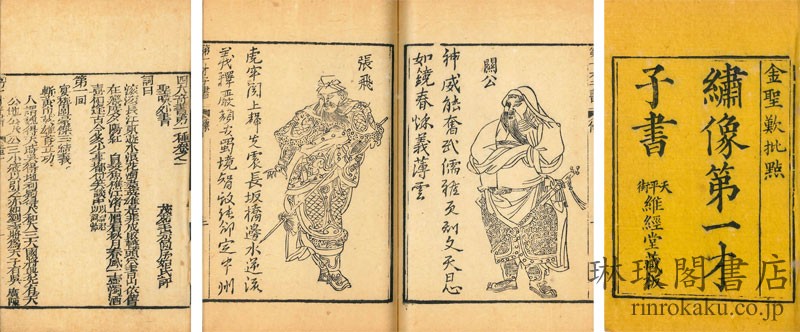 金聖歎批點
繡像第一才
子書
天平街
維經堂藏板
關公
神威能奮武儒雅更知文天日心
如鏡春秋義薄雲
張飛
虎牢關上聲先震長坂橋邊水逆流
義釋嚴顏安蜀境智欺張郃定中州
四大奇書第一種卷之一
聖嘆外書
詞曰
滾滾長江東逝水浪花淘盡英雄是非成敗轉頭空青山依舊
在幾度夕陽紅 白髮漁樵江渚上慣看秋月春風一壺濁酒
喜相逢古今多少事都付笑談中
第一回
宴桃園豪傑三結義
斬黃巾英雄首立功
琳琅閣書店
rinrokaku.co.jp